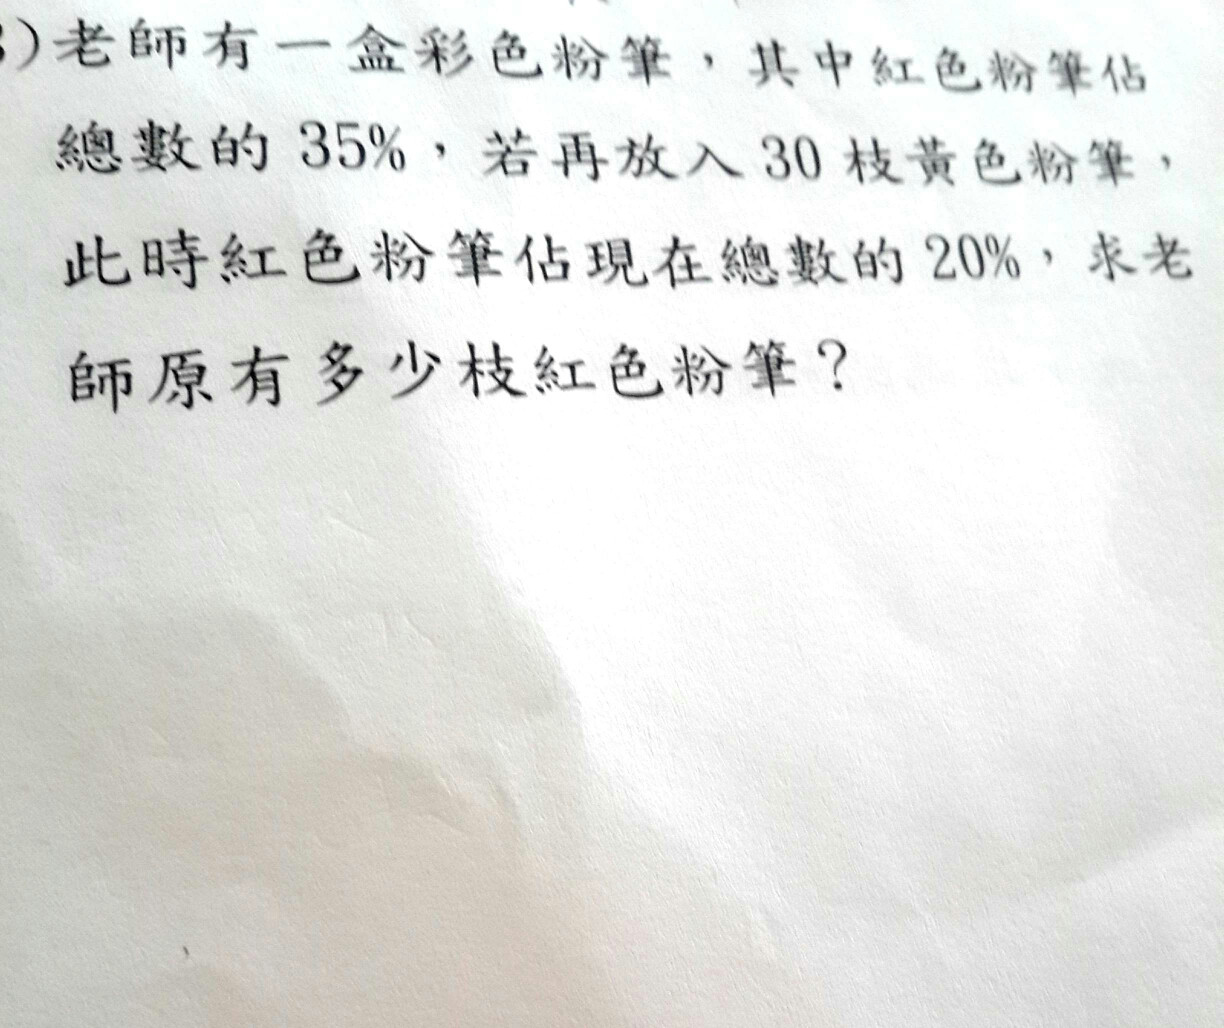 )老師有一盒彩色粉筆,其中紅色粉筆佔
總數的 35%,若再放入 30 枝黃色粉筆,
此時紅色粉筆佔現在總數的 20%,求老
師原有多少枝紅色粉筆?